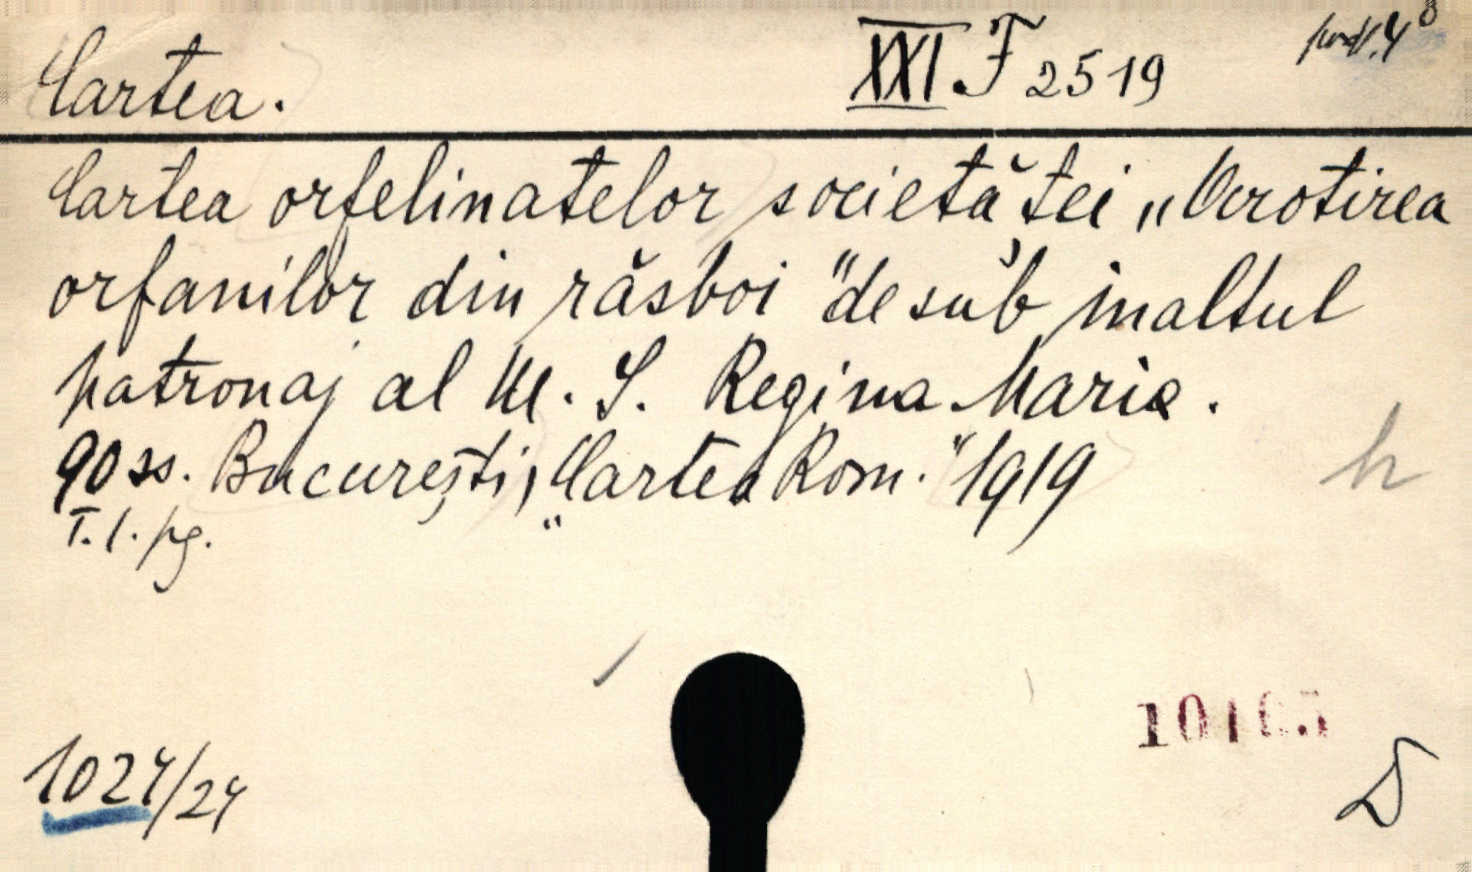 Cartea. XXI. F 2519
Cartea orfelinatelor societăței „Ocrotirea
orfanilor din răsboi" de sub inaltul
patronaj al M. S. Regina Maria.
90 ss. București, „Cartea Rom." 1919
T. 1. pg.
1024/24
D